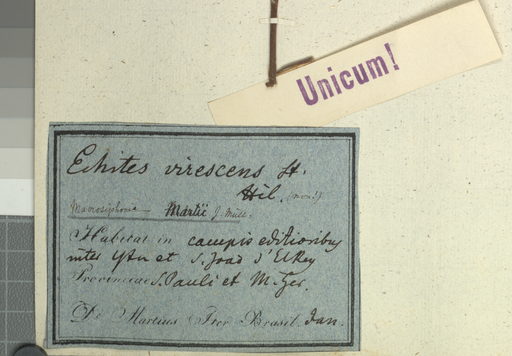 Unicum!
Echites virescens St.
Hil.
Macrosiphonia Martii J. Müll.
Habitat in campis editioribus
inter Ytu et S. Joaõ d'El Rey
Provinciae S. Pauli et M. Ger.
De Martius Iter Brasil. Jan.